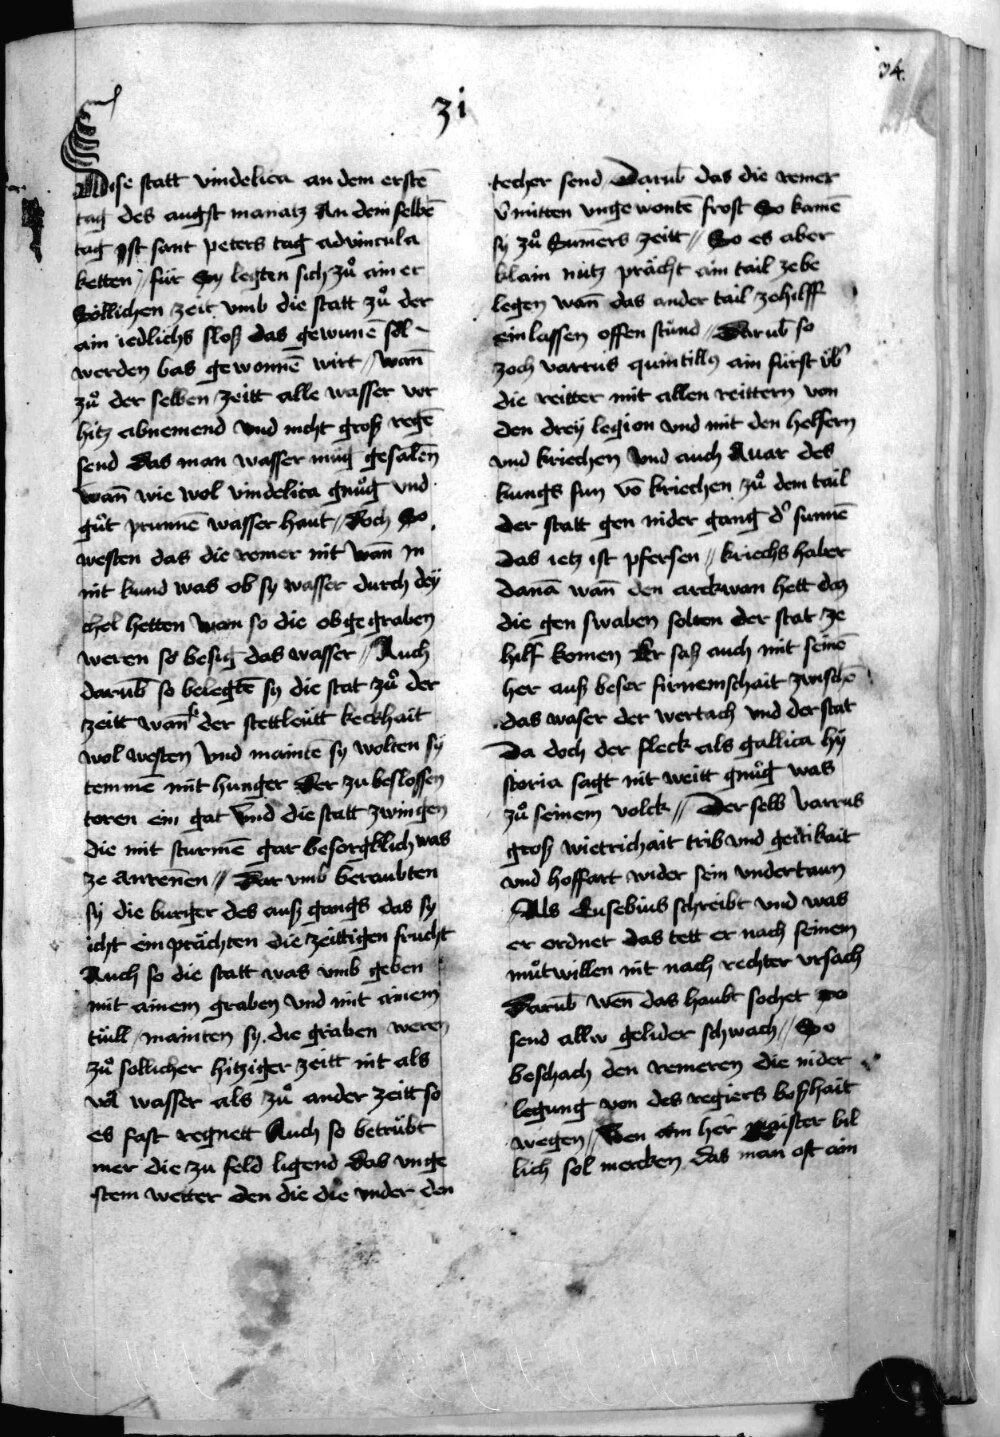 34.
31
Dise statt vindelica an dem erstē
tag des augst manatz An dem selbē
tag Ist sant peters tag advincula
ketten // für Sy legten sich zuͦ ainer
Söllichen zeit vmb die statt zuͦ der
ain iedlichs sloß das gewunē sol
werden bas gewonnē wirt // wan̄
zuͦ der selben zeitt alle wasser vor
hitz abnemend vnd nicht groß regē
send Das man wasser müg gesalen̄
wan̄ wie wol vindelica gnuͦg vnd
guͦt prunnē wasser haut // Doch So
westen das die romer nit wan̄ In
nit kund was ob sy wasser durch dey
chel hetten wan so die obgegraben
weren so besig das wasser // Auch
darub̄ so belegtē sy die stat zuͦ der
zeitt wan̄ der stettleütt keckhait
wol westen vnd maintē sy wolten sy
temmē mit hunger Der zu beslossen
toren ein gat vnd die statt zwingen
die mit sturmē gar besorgklich was
ze anrenen // Dar vmb beraubten
sy die burger des auß gangs das sy
icht ein prächten die zeittigen frucht
Auch so die statt was vmb geben
mit ainem graben vnd mit ainem
tüll mainten sy die graben weren
zuͦ sollicher hitziger zeitt nit als
vol wasser als zuͦ ander zeitt so
es fast regnett Auch so betrübt
mer die zu feld ligend Das vnge
stem wetter den die die vnder den
techer send Darub̄ das die remer
vmitten vngewontē frost So kamē
sy zuͦ Sumers zeitt // So es aber
klain nutz prächt ain tail zebe
legen wan̄ das ander tail zehilff
einlassen offen stünd // Darub̄ so
zoch varrus quintillꝯ ain fürst üb
die reitter mit allen reittern von
den drey legion vnd mit den helfern
vnd kriechen vnd auch Auar des
kungs sun vō kriechen zuͦ dem tail
der statt gen nider gang d sunnē
das ietz ist pfersen // kriechs haber
danā wan̄ den arckwon hett das
die gen swaben solten der stat ze
hilf komen Er saß auch mit seinē
her auß beser fürnemschait zwischē
das waser der wertach vnd der stat
Da doch der fleck als gallica hy
storia sagt nit weitt gnuͦg was
zuͦ seinem volck // Der selb varrus
groß wietrichait trib vnd geitikait
vnd hoffart wider sein vndertaun
Als Eusebius schreibt vnd was
er ordnet das tett er nach seinem
muͦtwillen nit nach rechter vrsach
Darub̄ wen̄ das haubt sochet so
send allw gelider schwach // So
beschach den remeren die nider
legung von des regiers boßhait
wegen // Ben ain her maister bil
lich sol mercken das man oft ain